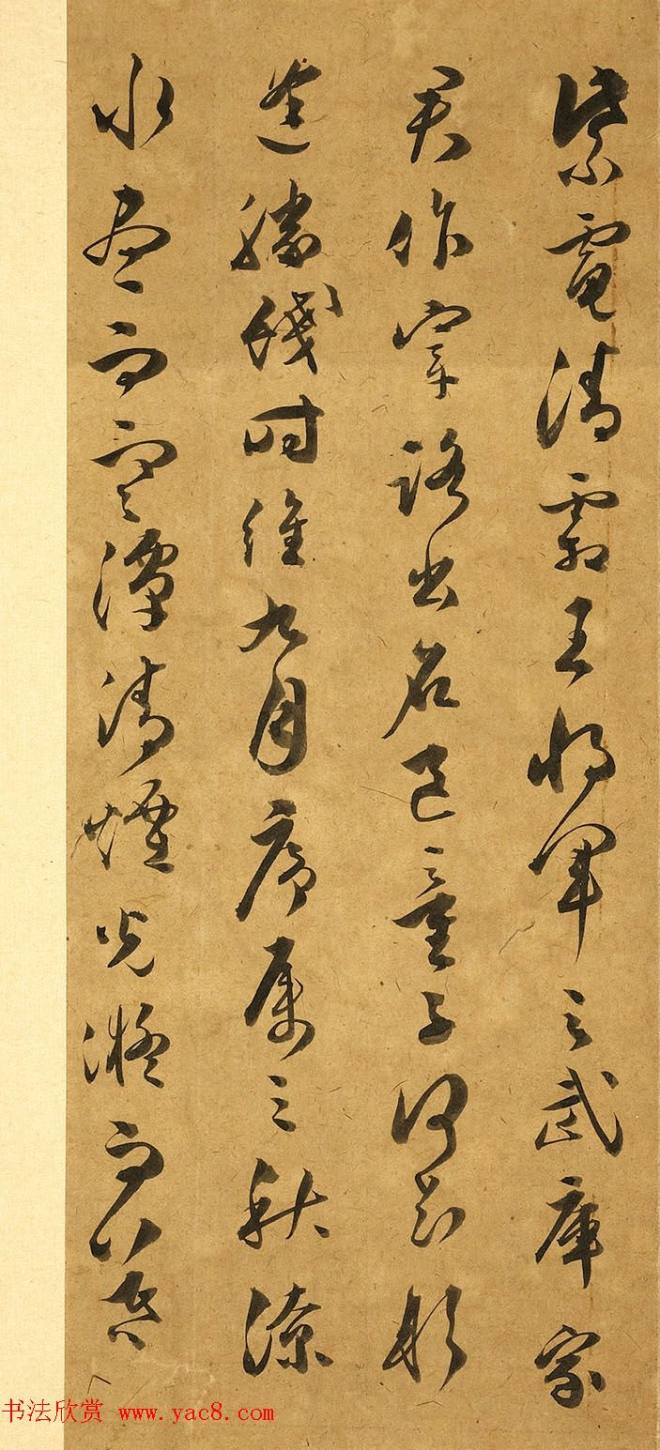 紫電清霜王將軍之武庫家
君作宰路出名區童子何知躬
逢勝餞時維九月序屬三秋潦
水盡而寒潭清煙光凝而暮
书法欣赏 www.yac8.com